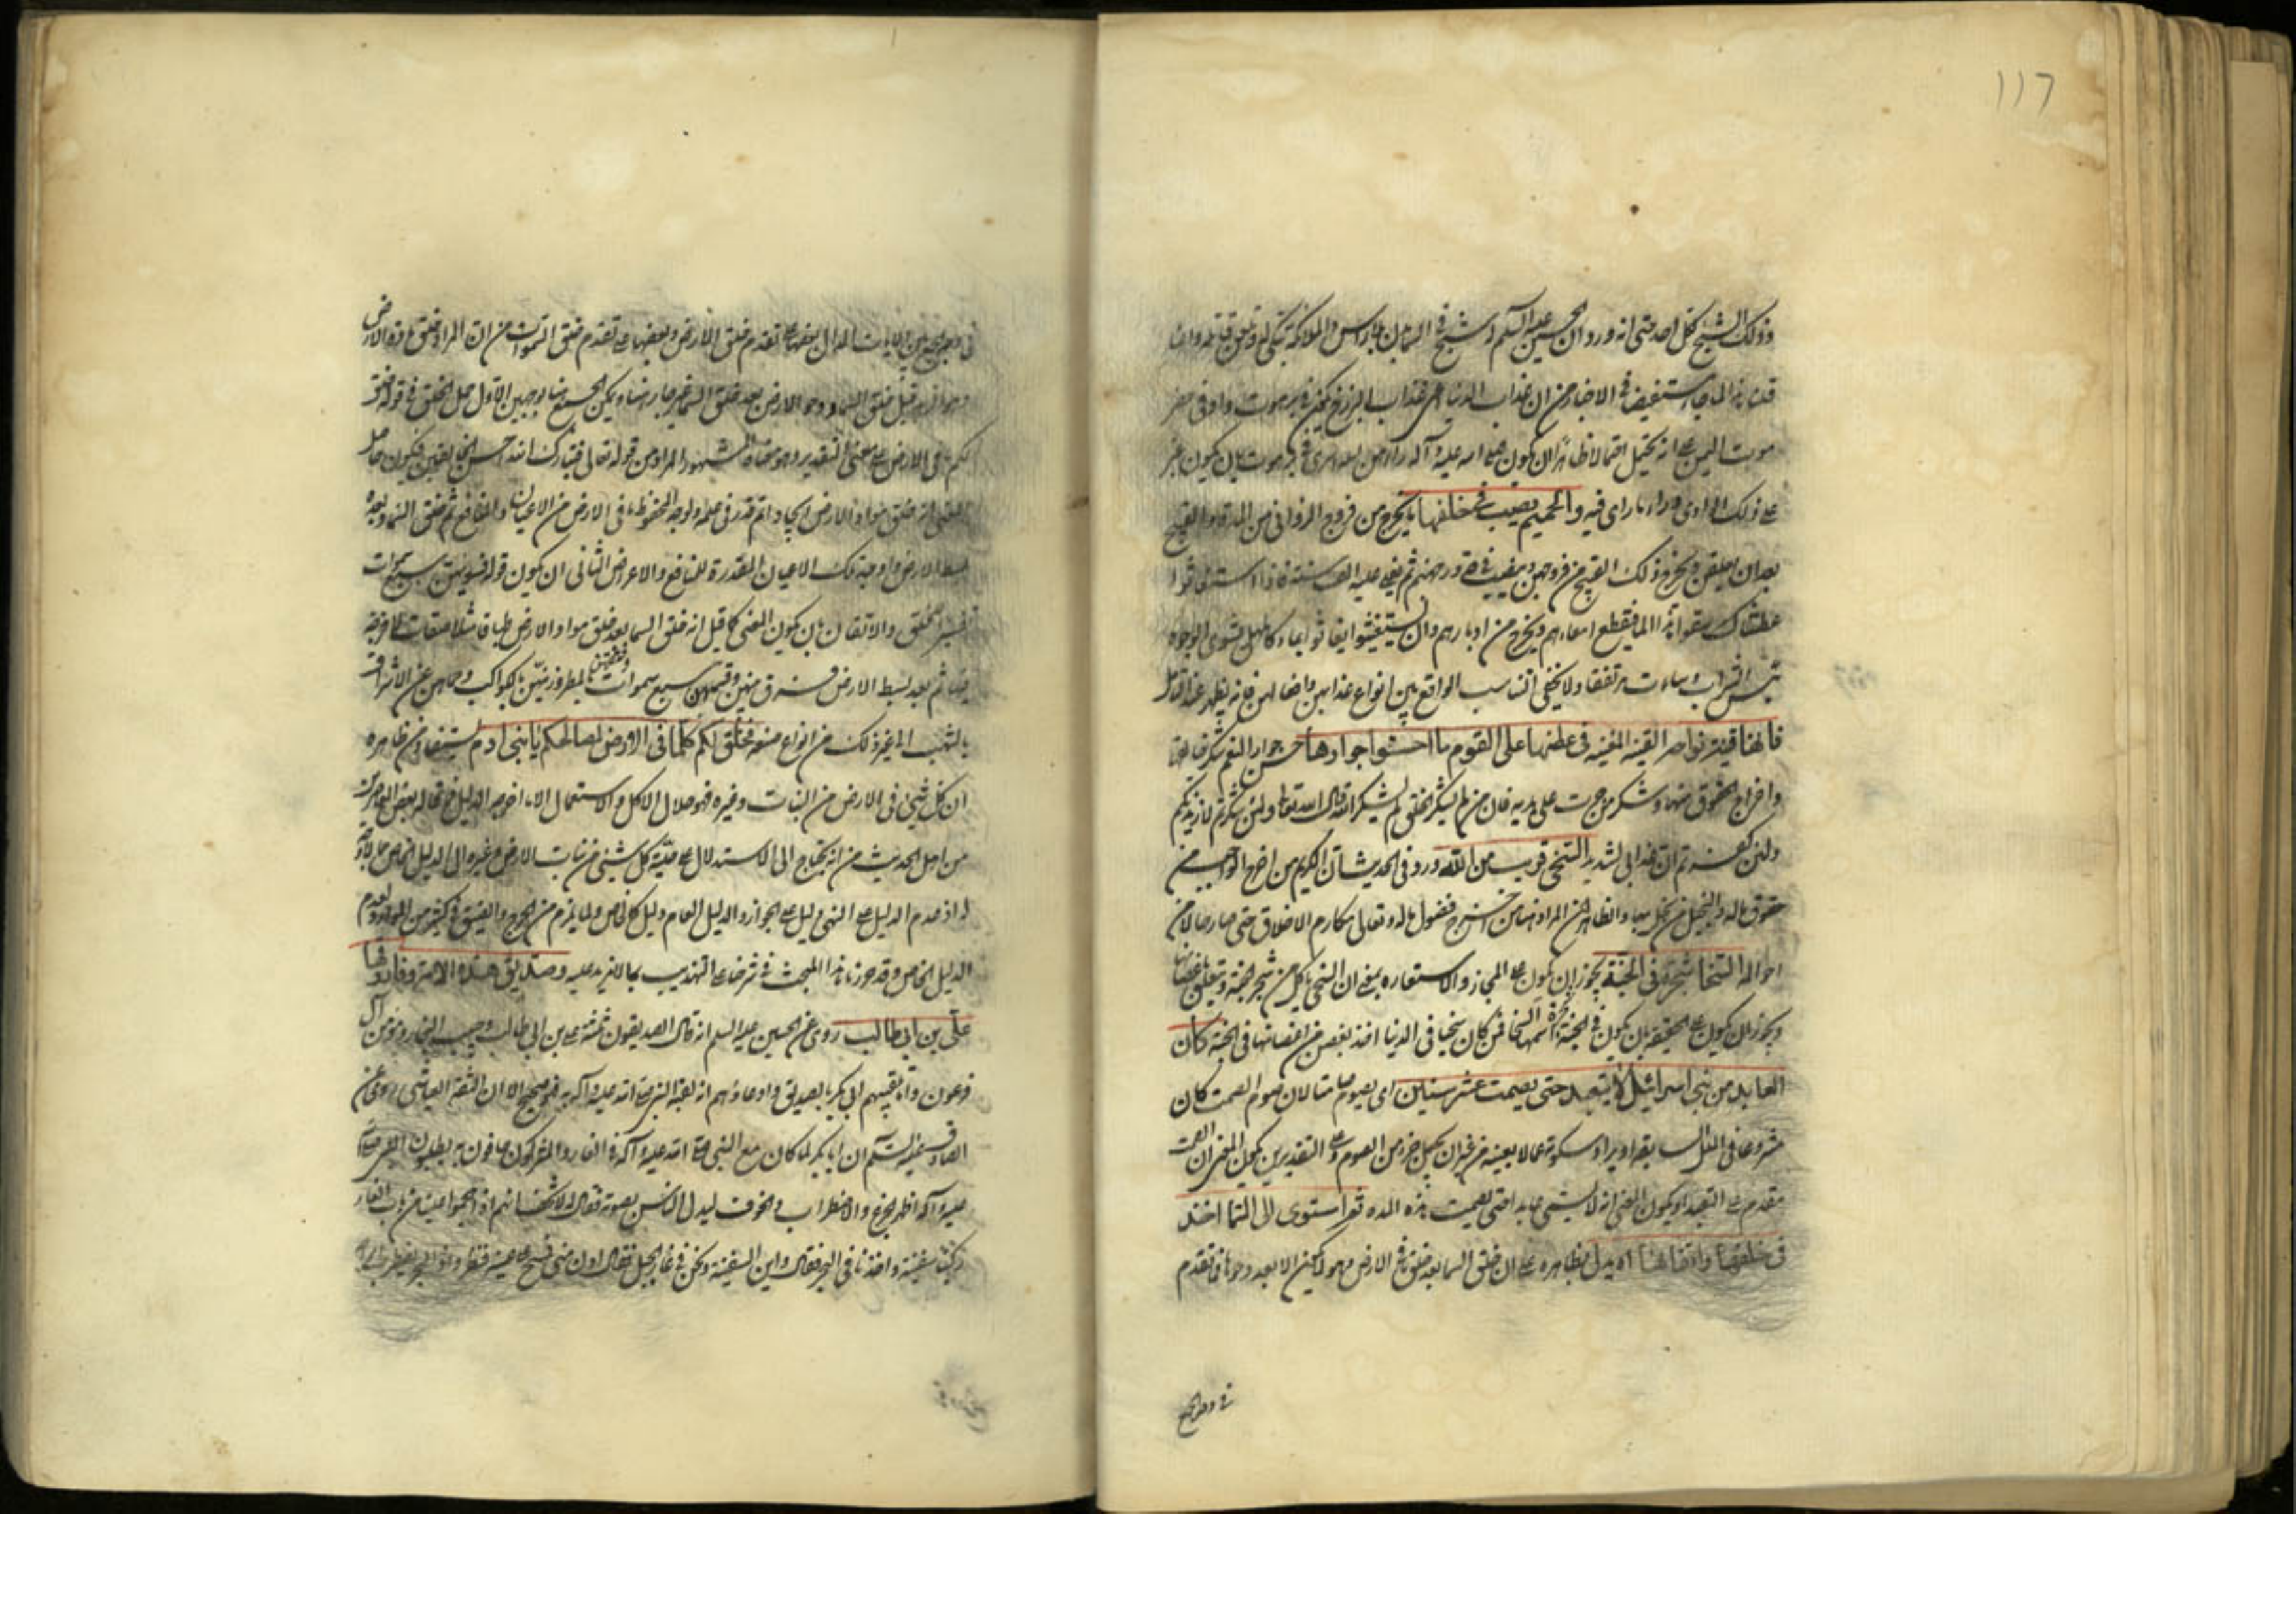 ١١٦
وذلك الشبح لكل احد حتى انه ورد ان الحسين عليه السلم له شبح في السما بلا راس والملائكة تبكي له وتلعن قتلته واما
قلنا هذا لما جاء مستفيضا في الاخبار من ان عذاب الدنيا اعني عذاب البرزخ يكون في برهوت وادي في حضر
موت اليمن على انه يحتمل احتمالا ظاهرا ان يكون صلى الله عليه وآله راهن ليلة اسري في برهوت بان يكون عبر
على ذلك الوادي وراى ما راى فيه والحميم يصيب في خلفها ما يخرج من فروج الزواني من المدة والقيح
بعد ان يعلقن ويخرج ذلك القيح من فروجهن ويصب في قدور جهنم ثم يغلى عليه الف سنة فاذا استغاثوا
عطشاك سقوا هذا الماء فيقطع امعاءهم ويخرج من ادبارهم وان يستغيثوا يغاثوا بماء كالمهل يشوي الوجوه
بئس الشراب وساءت مرتفقا ولا يخفى التناسب الواقع بين انواع عذابهن وافعالهن فانه يظهر عند التامل
فانها قينة نواحه القينة المغنية في عطنها على القوم ما احسنوا جوارها حسن جوار النعم شكر خالقها
واخراج الحقوق منها وشكر من جرت على يديه فان من لم يشكر الخلق لم يشكر الله قال الله تعالى ولئن شكرتم لازيدنكم
ولئن كفرتم ان عذابي لشديد السخي قريب من الله ورد في الحديث ان الكريم من اخرج الواجب من
حقوق ماله والبخيل من بخل بها والظاهر ان المراد هنا من اخرج فضول ماله وتعالى مكارم الاخلاق حتى صار حالا من
احواله السخا شجرة في الجنة يجوز ان يكون على المجاز والاستعاره بمعنى ان السخي ياكل من شجر الجنة ويتعلق باغصانها
ويجوز ان يكون على الحقيقة بان يكون في الجنة شجرة اسمها السخا فمن كان سخيا في الدنيا اخذ بغصن من اغصانها في الجنة كان
العابد من بني اسرائيل لا يتعبد حتى يصمت عشر سنين اي يصوم صامتا لان صوم الصمت كان
مشروعا في الملل السابقة او يراد سكوته عما لا يعنيه من غير ان يجعل جزء من الصوم وعلى التقديرين يكون المعنى ان الصمت
مقدم على التعبد او يكون المعنى انه لا يسمى عابدا حتى يصمت هذه المدة ثم استوى الى السما اخذ
في خلقها واتقانها اه يدل بظاهره على ان خلق السما بعد خلق الارض وهو كك لكن الا بعد دحوها فتقدم
في وجه الجمع
في وجه الجمع بين الايات الدال بعضها على تقدم خلق الارض وبعضها على تقدم خلق السموات من ان المراد خلق مادة الارض
وجواهره قبل خلق السما ودحو الارض بعد خلق السما غير جار هنا ويمكن الجمع هنا بوجهين الاول حمل الخلق في قوله خلق
لكم ما في الارض على معنى التقدير وهو معناه المشهور المراد من قوله تعالى فتبارك الله احسن الخالقين فيكون حاصل
المعنى انه خلق مواد الارض ايجادا ثم قدر في علمه ولوحه المحفوظ ما في الارض من الاعيان والمنافع ثم خلق السما وبعده
بسط الارض واوجد تلك الاعيان المقدرة للمنافع والاعراض الثاني ان يكون قوله فسويهن سبع سموات
تفسير الخلق والاتقان بان يكون المعنى كما قيل انه خلق السما بعد خلق مواد الارض طباقا متلاصقات لا فرجة
فيها ثم بعد بسط الارض فرق بينهن وفتقهن وجعلهن سبع سموات بالمطر وزينهن بالكواكب وحماهن عن الاستراق
بالشهب الى غير ذلك من انواع صنعه فخلق لكم كلما في الارض لمصالحكم يا بني ادم يستفاد من ظاهره
ان كل شيئ في الارض من النبات وغيره فهو حلال الاكل والاستعمال الا ما اخرجه الدليل فما قاله بعض المعاصرين
من اهل الحديث من انه يحتاج الى الاستدلال على حلية كل شيئ من نبات الارض وغيره الى الدليل الخاص مما لا وجه
له اذ عدم الدليل على النهي دليل على الجواز والدليل العام دليل كالخاص ولما يلزم من الحرج والضيق في كثير من الموارد لعدم
الدليل الخاص وقد حررنا هذا المبحث في شرحنا على التهذيب بما لا مزيد عليه وصديق هذه الامة وفاروقها
علي بن ابي طالب روى عن الحسين عليه السلم انه قال الصديقون ثلثة علي بن ابي طالب وحبيب النجار ومؤمن آل
فرعون واما تلقيبهم ابي بكر بالصديق وادعاؤهم انه لقبه النبي صلى الله عليه وآله به فهو صحيح الا ان الثقة العياشي روى عن
الصادق عليه السلم ان ابا بكر لما كان مع النبي صلى الله عليه وآله في الغار والمشركون حافون به يطلبون النبي صلى الله
عليه وآله اظهر الجزع والاضطراب والخوف ليدل الناس بصوته فقال له لا تخف انهم اذا هجموا علينا من باب الغار
ركبنا سفينة واخذنا في البحر فقال واين السفينة ونحن في غار الجبل فقال ادن مني فمسح على عينيه فنظر واذا البحر يضطرب